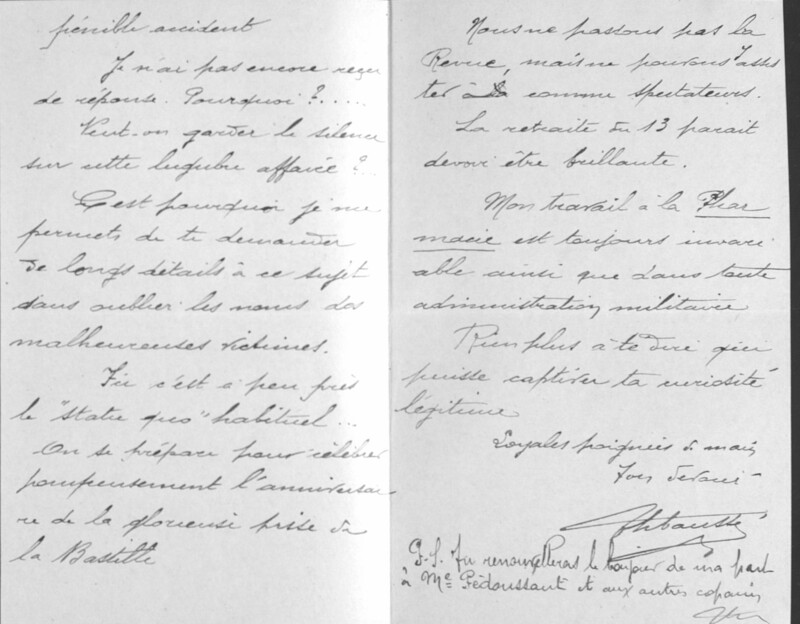 pénible accident
Je n'ai pas encore reçu
de réponse. Pourquoi ?.....
Veut-on garder le silence
sur cette lugubre affaire ?..
C'est pourquoi je me
permets de te demander
de longs détails à ce sujet
sans oublier les noms des
malheureuses victimes.
Ici c'est à peu près
le "statu quo" habituel...
On se prépare pour célébrer
pompeusement l'anniversai-
re de la glorieuse prise de
la Bastille
Nous ne passons pas la
Revue, mais ne pouvons y assis
ter à comme spectateurs.
La retraite du 13 parait
devoir être brillante.
Mon travail à la Phar
macie est toujours invari
able ainsi que dans toute
administration militaire
Rien plus à te dire qui
puisse captiver ta curiosité
légitime
Loyales poignées de mains
Ton dévoué
P.S. Tu renouvelleras le bonjour de ma part
à Me Pédoussant et aux autres copains